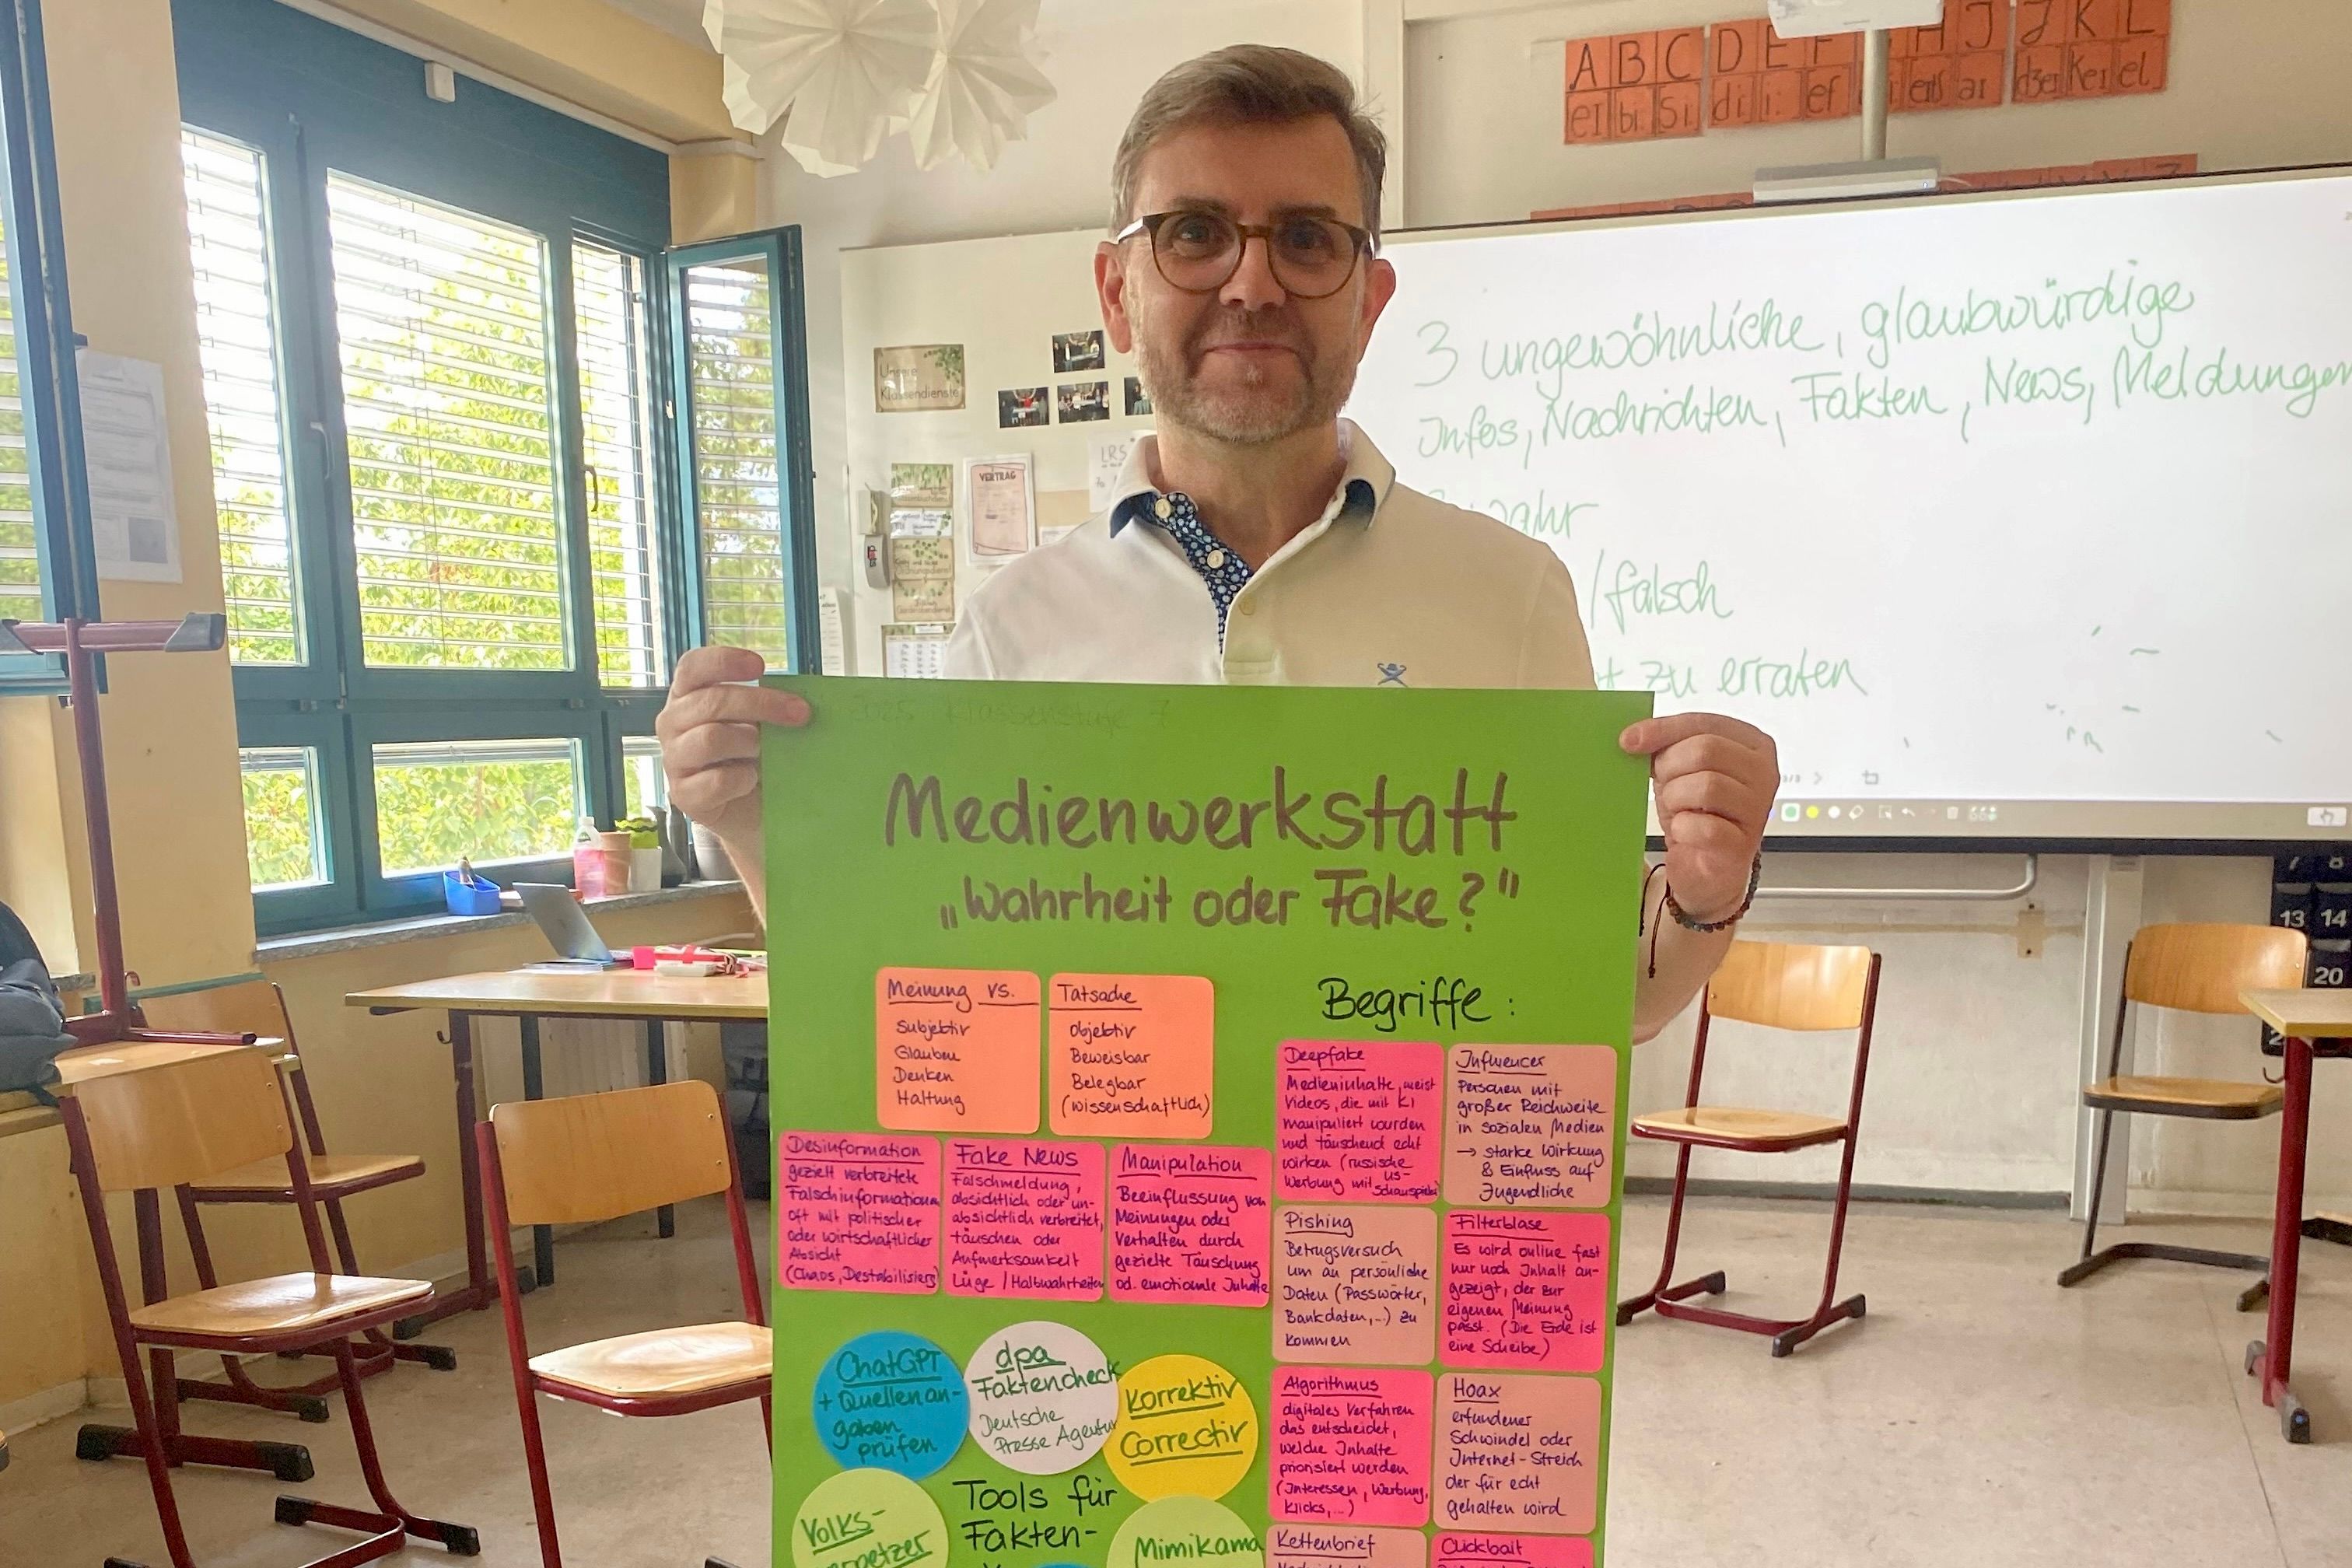 A B C D E F H I J K L
eI bi si di i: ef ar dʒer Kei el
3 ungewöhnliche, glaubwürdige
Infos, Nachrichten, Fakten, News, Meldungen
/falsch
zu erraten
Unsere
Klassendienste
VERTRAG
LRS
7 8
13 14
20
2025 Klassenstufe 7
Medienwerkstatt
„Wahrheit oder Fake?"
Meinung vs.
Subjektiv
Glauben
Denken
Haltung
Tatsache
objektiv
Beweisbar
Belegbar
(wissenschaftlich)
Begriffe:
Desinformation
gezielt verbreitete
Falschinformationen
oft mit politischer
oder wirtschaftlicher
Absicht
(Chaos, Destabilisierg)
Fake News
Falschmeldung,
absichtlich oder un-
absichtlich verbreitet,
täuschen oder
Aufmerksamkeit
Lüge / Halbwahrheiten
Manipulation
Beeinflussung von
Meinungen oder
Verhalten durch
gezielte Täuschung
od. emotionale Inhalte
Deepfake
Medieninhalte, meist
Videos, die mit KI
manipuliert wurden
und täuschend echt
wirken (russische
US-
Werbung mit Schauspieler)
Influencer
Personen mit
großer Reichweite
in sozialen Medien
→ starke Wirkung
& Einfluss auf
Jugendliche
Pishing
Betrugsversuch
um an persönliche
Daten (Passwörter,
Bankdaten,...) zu
kommen
Filterblase
Es wird online fast
nur noch Inhalt an-
gezeigt, der zur
eigenen Meinung
passt. (Die Erde ist
eine Scheibe)
Algorithmus
digitales Verfahren
das entscheidet,
welche Inhalte
priorisiert werden
(Interessen, Werbung,
Klicks,...)
Hoax
erfundener
Schwindel oder
Internet-Streich
der für echt
gehalten wird
Kettenbrief
Clickbait
ChatGPT
+ Quellenan-
gaben
prüfen
dpa
Faktencheck
Deutsche
Presse Agentur
Korrektiv
Correctiv
Tools für
Fakten-
Volks-
verpetzer
Mimikama